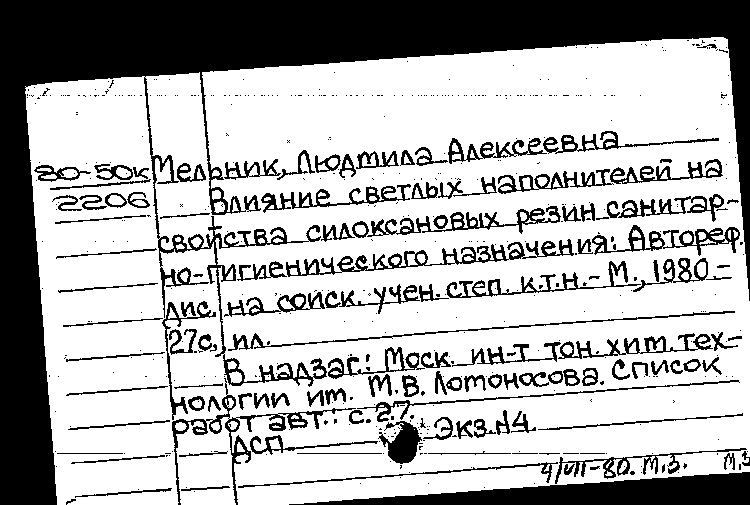 80-50к Мельник, Людмила Алексеевна
2206 Влияние светлых наполнителей на
свойства силоксановых резин санитар-
но-гигиенического назначения: Автореф.
дис. на соиск. учен. степ. к.т.н.- М., 1980.-
27с., ил.
В надзаг.: Моск. ин-т тон. хим. тех-
нологии им. М.В. Ломоносова. Список
работ авт.: с.27.
ДСП. Экз.N4.
4/VII-80. М.З. М.З